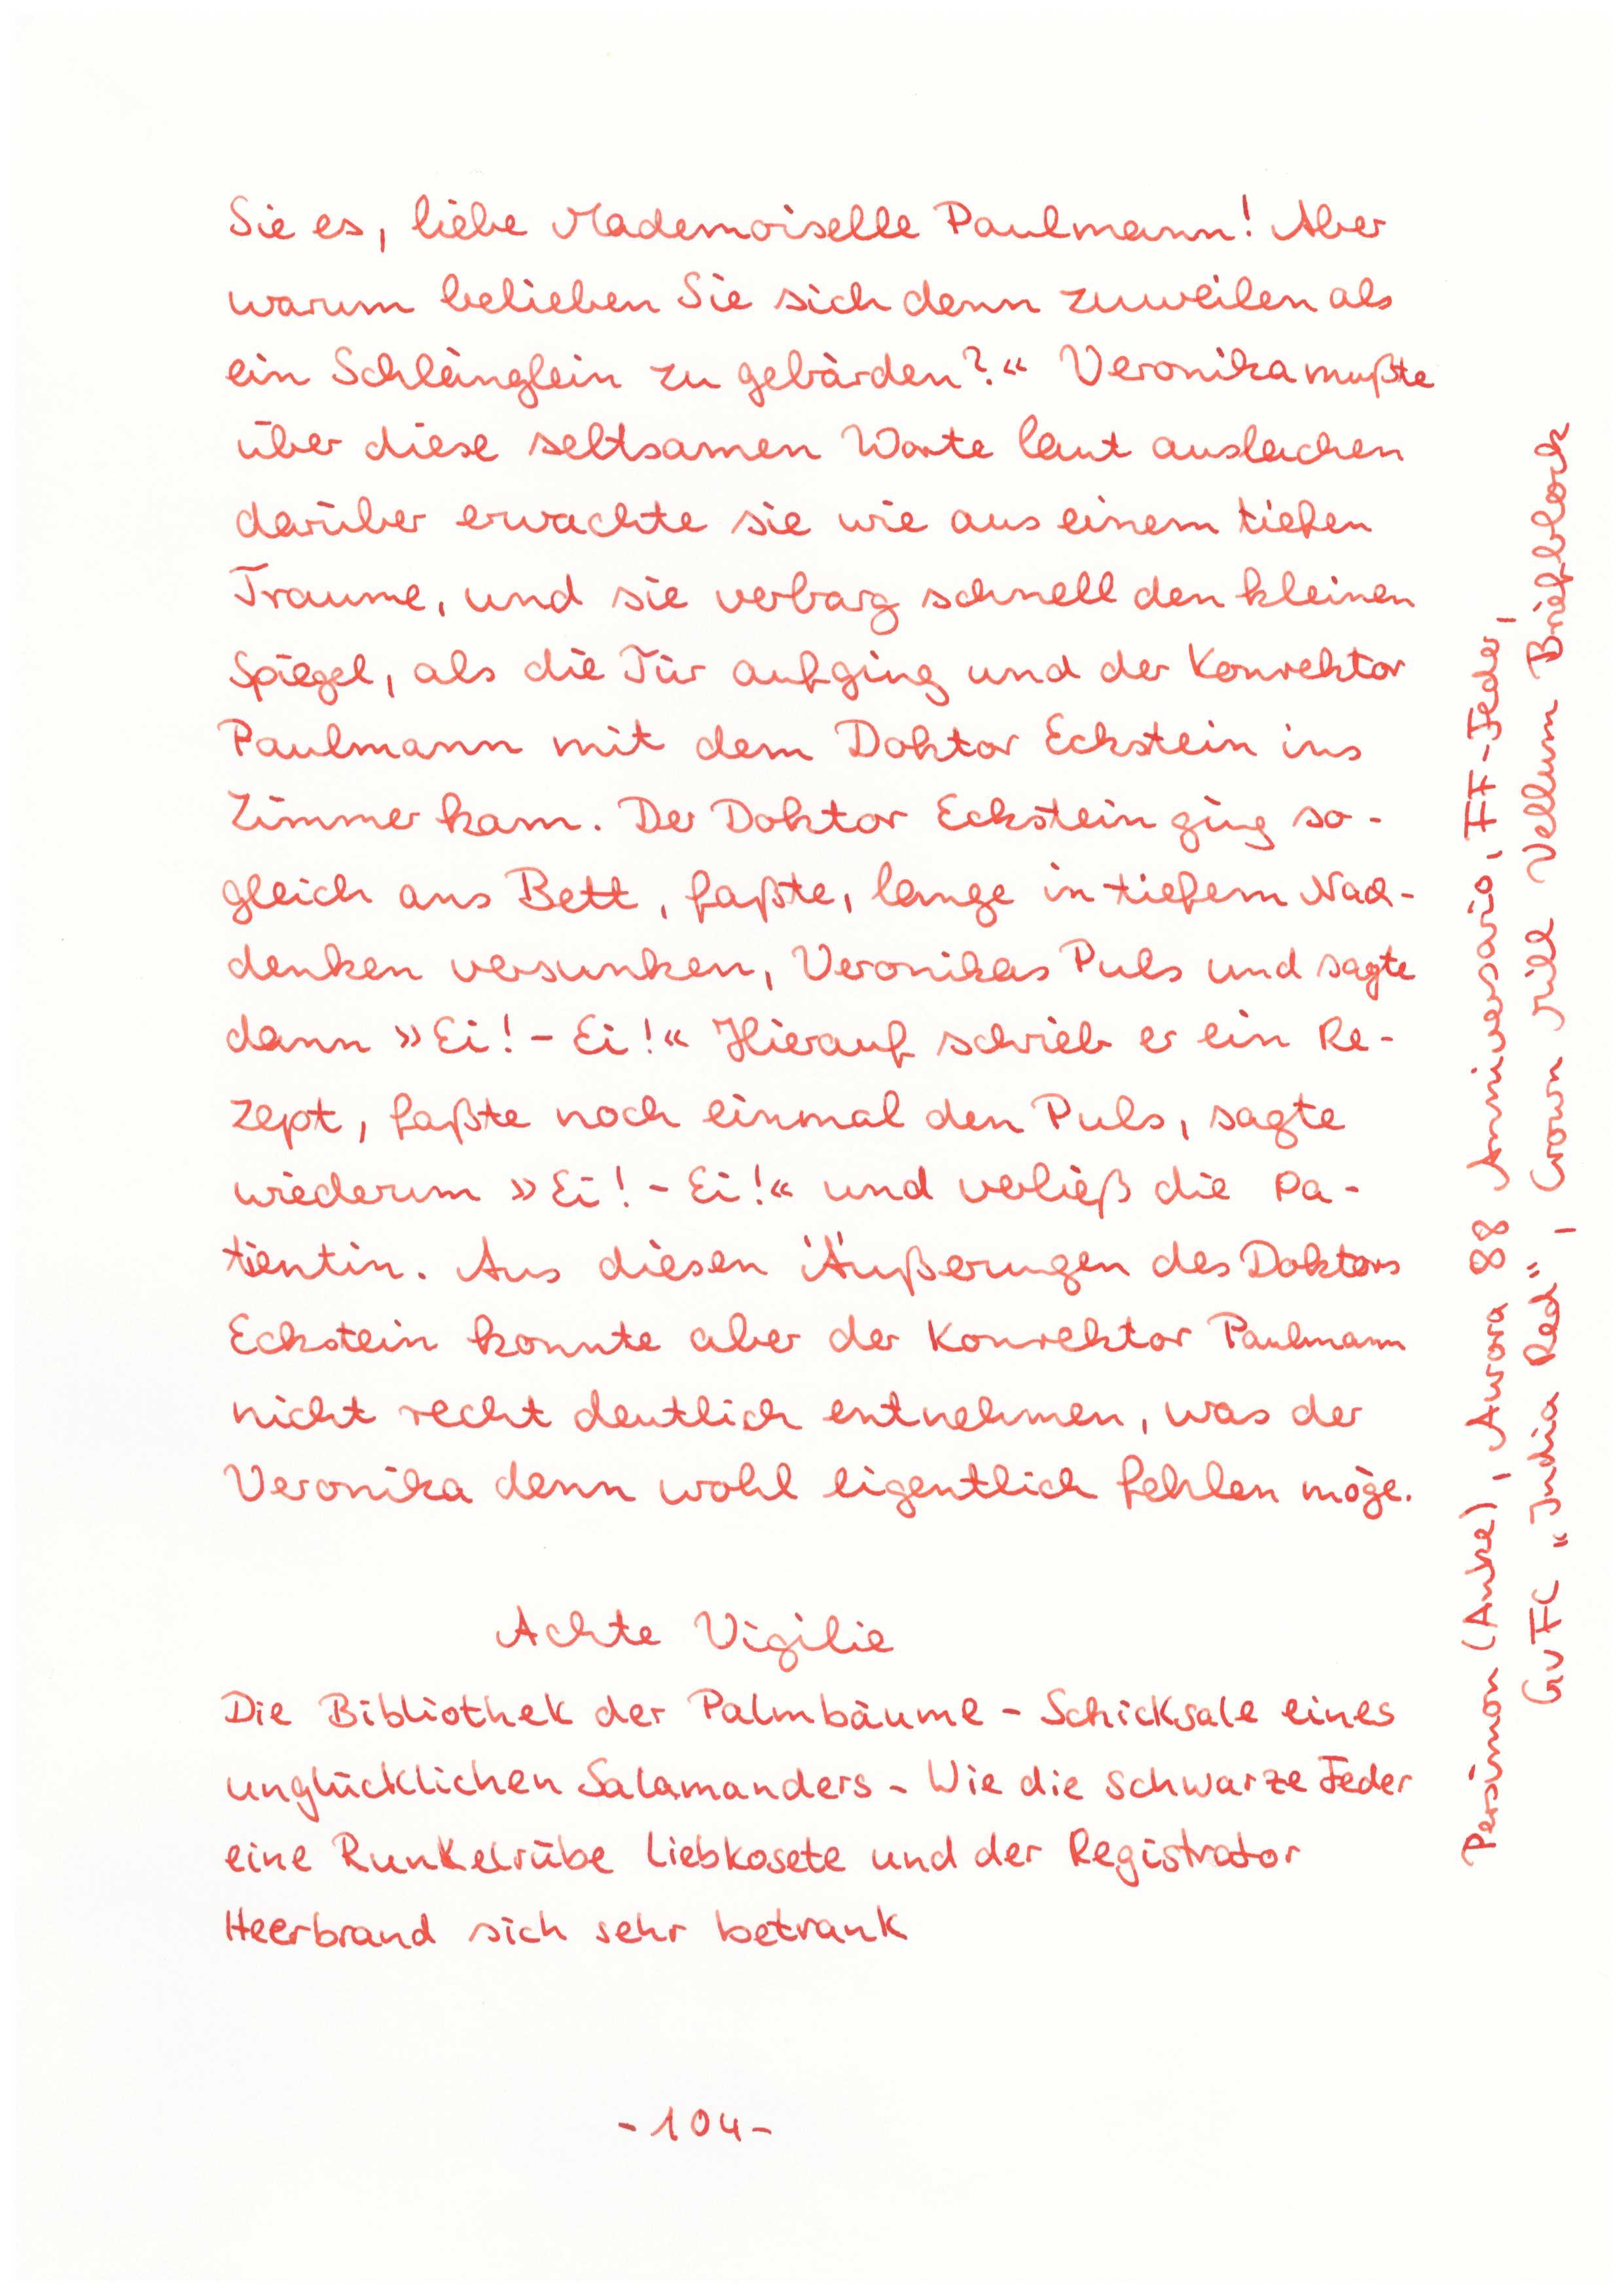 Sie es, liebe Mademoiselle Paulmann! Aber
warum belieben Sie sich denn zuweilen als
ein Schlänglein zu gebärden?« Veronika mußte
über diese seltsamen Worte laut auslachen
darüber erwachte sie wie aus einem tiefen
Traume, und sie verbarg schnell den kleinen
Spiegel, als die Tür aufging und der Konrektor
Paulmann mit dem Doktor Eckstein ins
Zimmer kam. Der Doktor Eckstein ging so-
gleich ans Bett, faßte, lange in tiefem Nach-
denken versunken, Veronikas Puls und sagte
dann »Ei! - Ei!« Hierauf schrieb er ein Re-
zept, faßte noch einmal den Puls, sagte
wiederum »Ei! - Ei!« und verließ die Pa-
tientin. Aus diesen Äußerungen des Doktors
Eckstein konnte aber der Konrektor Paulmann
nicht recht deutlich entnehmen, was der
Veronika denn wohl eigentlich fehlen möge.
Achte Vigilie
Die Bibliothek der Palmbäume - Schicksale eines
unglücklichen Salamanders - Wie die schwarze Feder
eine Runkelrübe liebkosete und der Registrator
Heerbrand sich sehr betrank
- 104 -
Persimmon (Anke), Aurora 88 Anniversario, FF-Feder,
GvFC "India Red", Crown Mill Vellum Briefblock